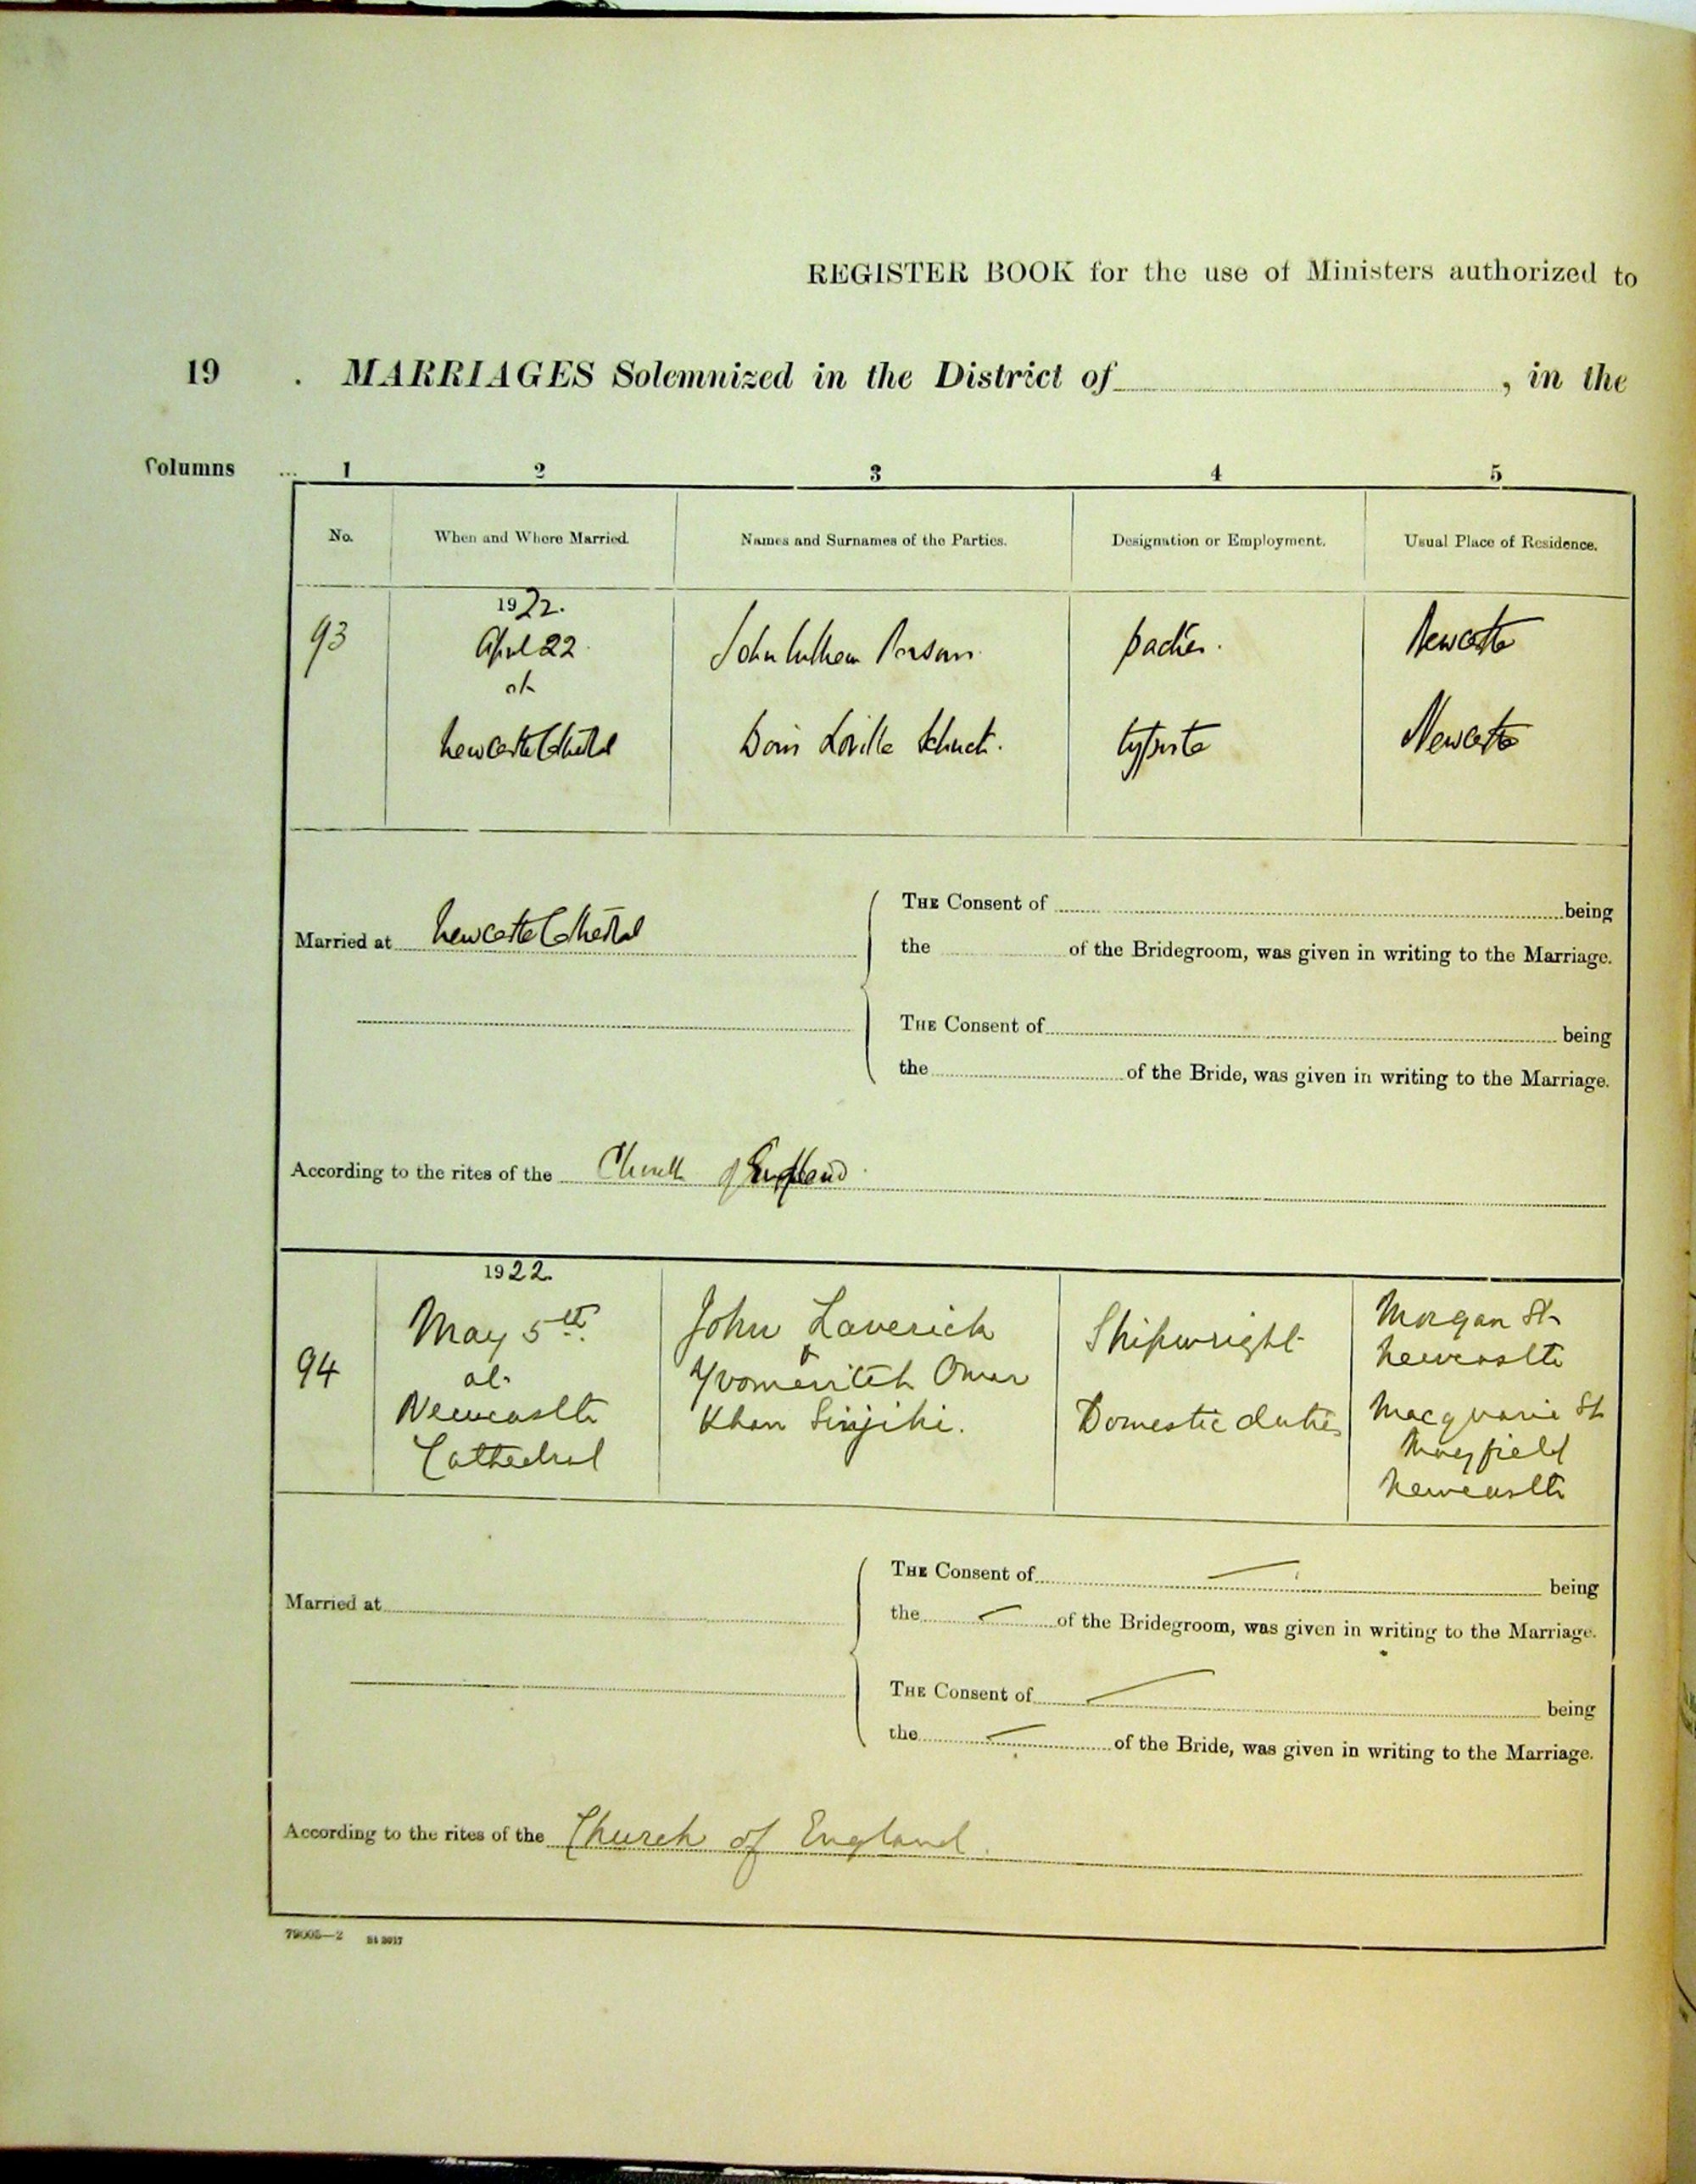 REGISTER BOOK for the use of Ministers authorized to
19 . MARRIAGES Solemnized in the District of , in the
Columns ... 1 2 3 4 5
No. When and Where Married. Names and Surnames of the Parties. Designation or Employment. Usual Place of Residence.
1922.
93 April 22 John Parsons packer. Newcastle
at
Newcastle Cathedral Doris Schuck. typiste Newcastle
THE Consent of being
Married at Newcastle Cathedral
the of the Bridegroom, was given in writing to the Marriage.
THE Consent of being
the of the Bride, was given in writing to the Marriage.
According to the rites of the Church of England.
1922.
May 5th John Laverick Shipwright Morgan St
Newcastle
94 at Omar
Newcastle Khan Domestic duties Macquarie St
Cathedral Mayfield
Newcastle
THE Consent of being
Married at
the of the Bridegroom, was given in writing to the Marriage.
THE Consent of being
the of the Bride, was given in writing to the Marriage.
According to the rites of the Church of England.
79005—2